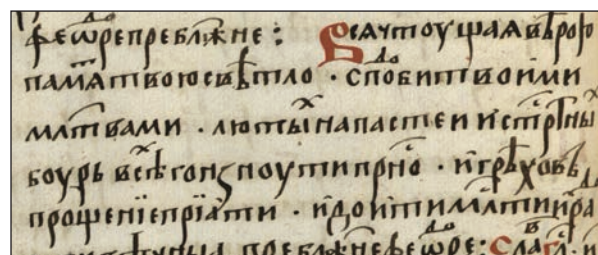 феѡ҃репребл҃жне : Всѧчтоущаѧвѣрою
памѧ҃твоюсвѣтло · сп҃обитвоими
мл҃твами · лютыⷯнапастеи истрⷭ҇тныⷯ
боурь всѣⷯгонѕноутипрⷭ҇но · игрѣховъ
прощенїепрїѧти · идоитимл҃тииⷬ҇а
пребл҃жнефеѡⷣре : Славⷡ҇а гл҃ · и